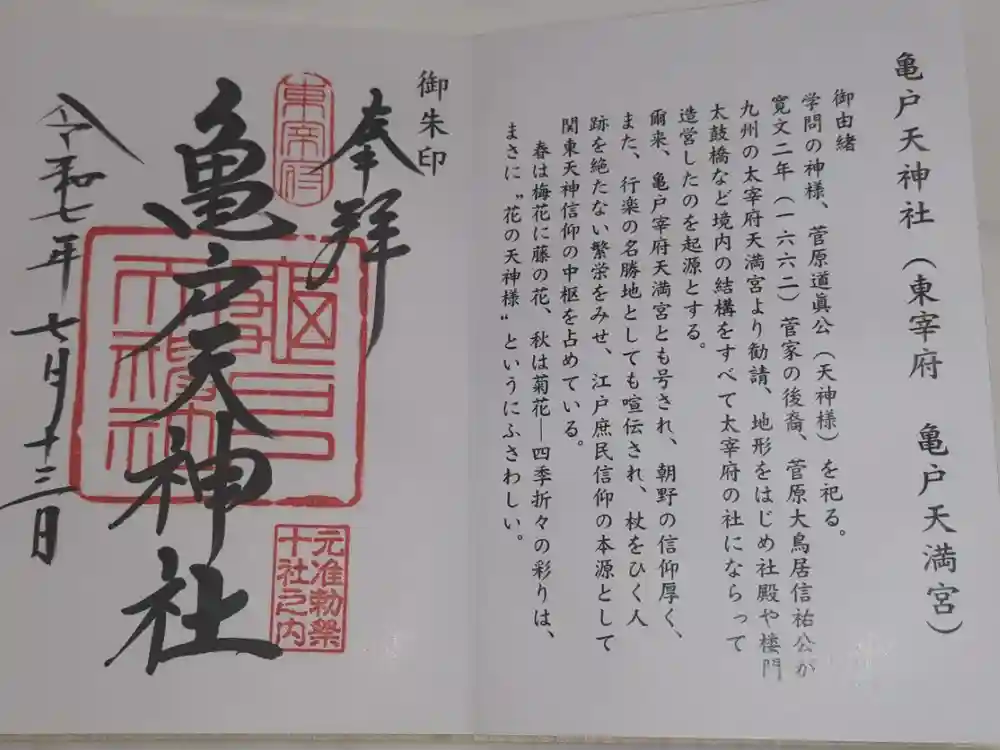 亀戸天神社（東宰府　亀戸天満宮）
御由緒
学問の神様、菅原道眞公（天神様）を祀る。
寛文二年（一六六二）菅家の後裔、菅原大鳥居信祐公が
九州の太宰府天満宮より勧請、地形をはじめ社殿や楼門
太鼓橋など境内の結構をすべて太宰府の社にならって
造営したのを起源とする。
爾来、亀戸宰府天満宮とも号され、朝野の信仰厚く、
また、行楽の名勝地としても喧伝され、杖をひく人
跡を絶たない繁栄をみせ、江戸庶民信仰の本源として
関東天神信仰の中枢を占めている。
春は梅花に藤の花、秋は菊花―四季折々の彩りは、
まさに〝花の天神様〟というにふさわしい。
御朱印
奉拝
東宰府
亀戸天神社
元准勅祭
十社之内
令和七年七月十三日